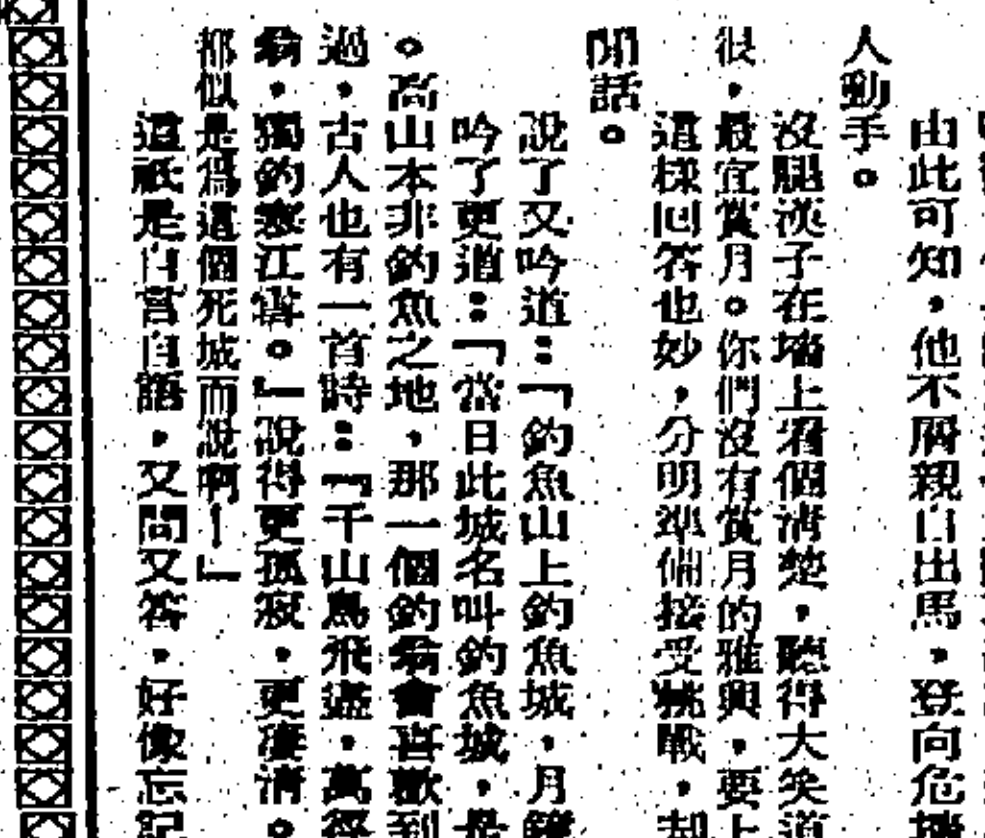 人動手。
由此可知，他不屑親自出馬，登向危
沒腿漢子在墻上看個清楚，聽得大笑道
很，最宜賞月。你們沒有賞月的雅興，要上
這樣回答也妙，分明準備接受挑戰，却
閒話。
說了又吟道：「釣魚山上釣魚城，月
吟了更道：「當日此城名叫釣魚城，是
。高山本非釣魚之地，那一個釣翁會喜歡到
過，古人也有一首時：『千山鳥飛盡，萬徑
翁，獨釣寒江雪。』說得更孤寂，更凄清。
都似是為這個死城而說啊！」
這祇是自言自語，又問又答，好像忘記